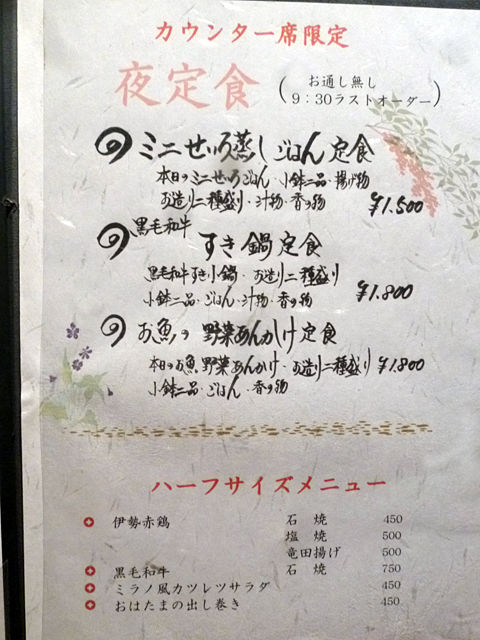 カウンター席限定
夜定食
お通し無し
9:30ラストオーダー
ミニせいろ蒸しごはん定食
本日のミニせいろごはん・小鉢二品・揚げ物
お造り二種盛り・汁物・香の物
¥1.500
黒毛和牛
すき鍋定食
黒毛和牛すき小鍋・お造り二種盛り
小鉢二品・ごはん・汁物・香の物
¥1.800
お魚の野菜あんかけ定食
本日のお魚野菜あんかけ・お造り二種盛り ¥1.800
小鉢二品・ごはん・香の物
ハーフサイズメニュー
伊勢赤鶏 石焼 450
塩焼 500
竜田揚げ 500
黒毛和牛 石焼 750
ミラノ風カツレツサラダ 450
おはたまの出し巻き 450